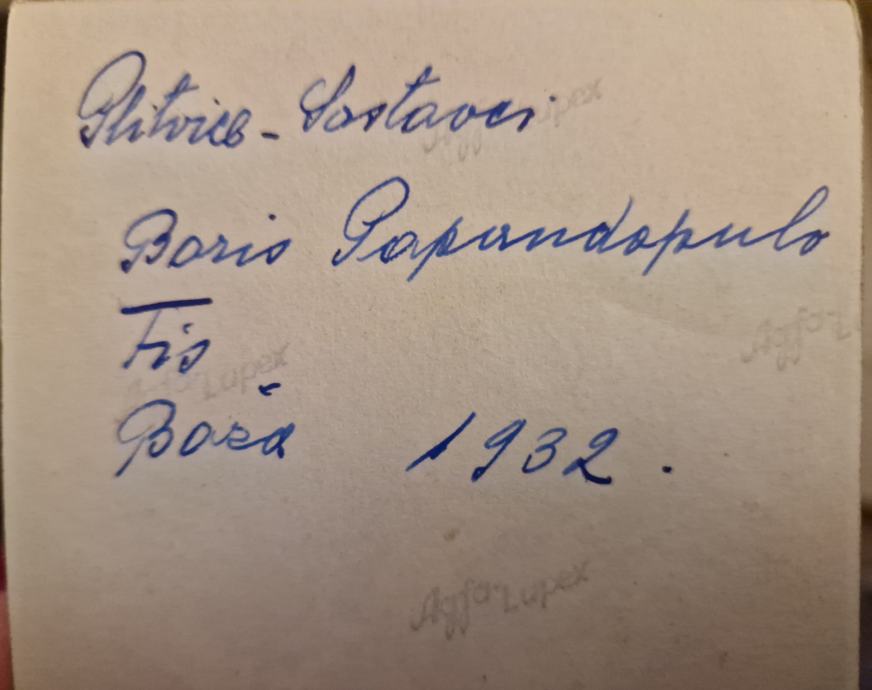 Plitvice - Sastavci
Boris Papandopulo
Fis
Boža 1932.
Agfa-Lupex
Agfa-Lupex
Agfa-Lupex